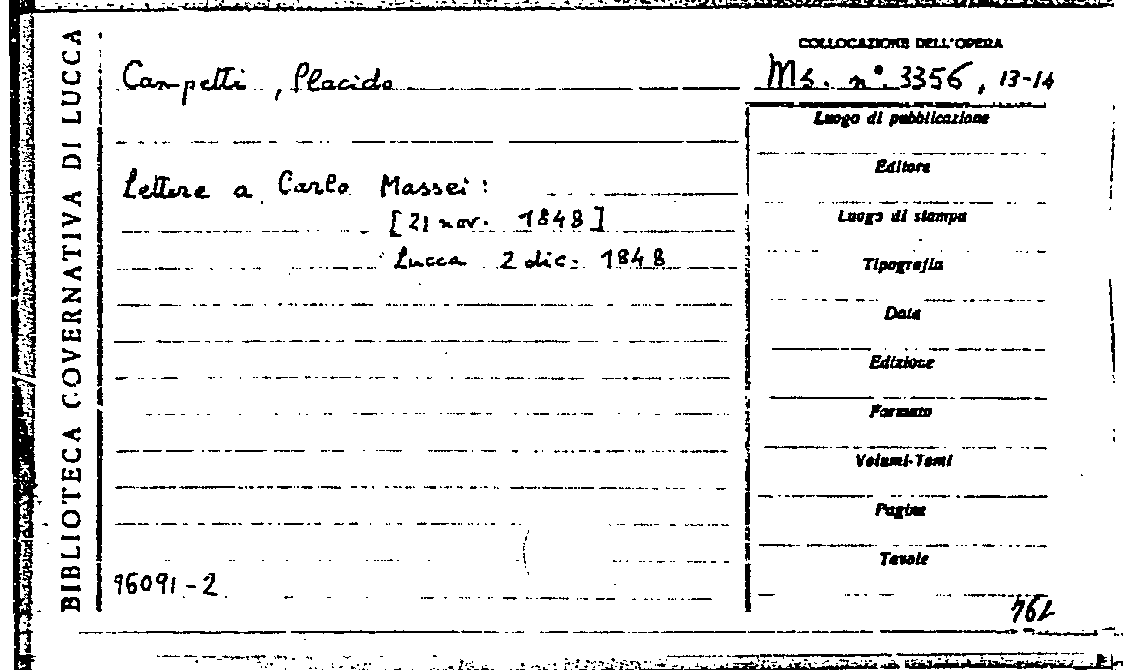 BIBLIOTECA GOVERNATIVA DI LUCCA
COLLOCAZIONE DELL'OPERA
Ms. n° 3356, 13-14
Campetti, Placido
Lettere a Carlo Massei:
[21 nov. 1848]
Lucca 2 dic. 1848
96091-2
Luogo di pubblicazione
Editore
Luogo di stampa
Tipografia
Data
Edizione
Formato
Volumi-Tomi
Pagine
Tavole